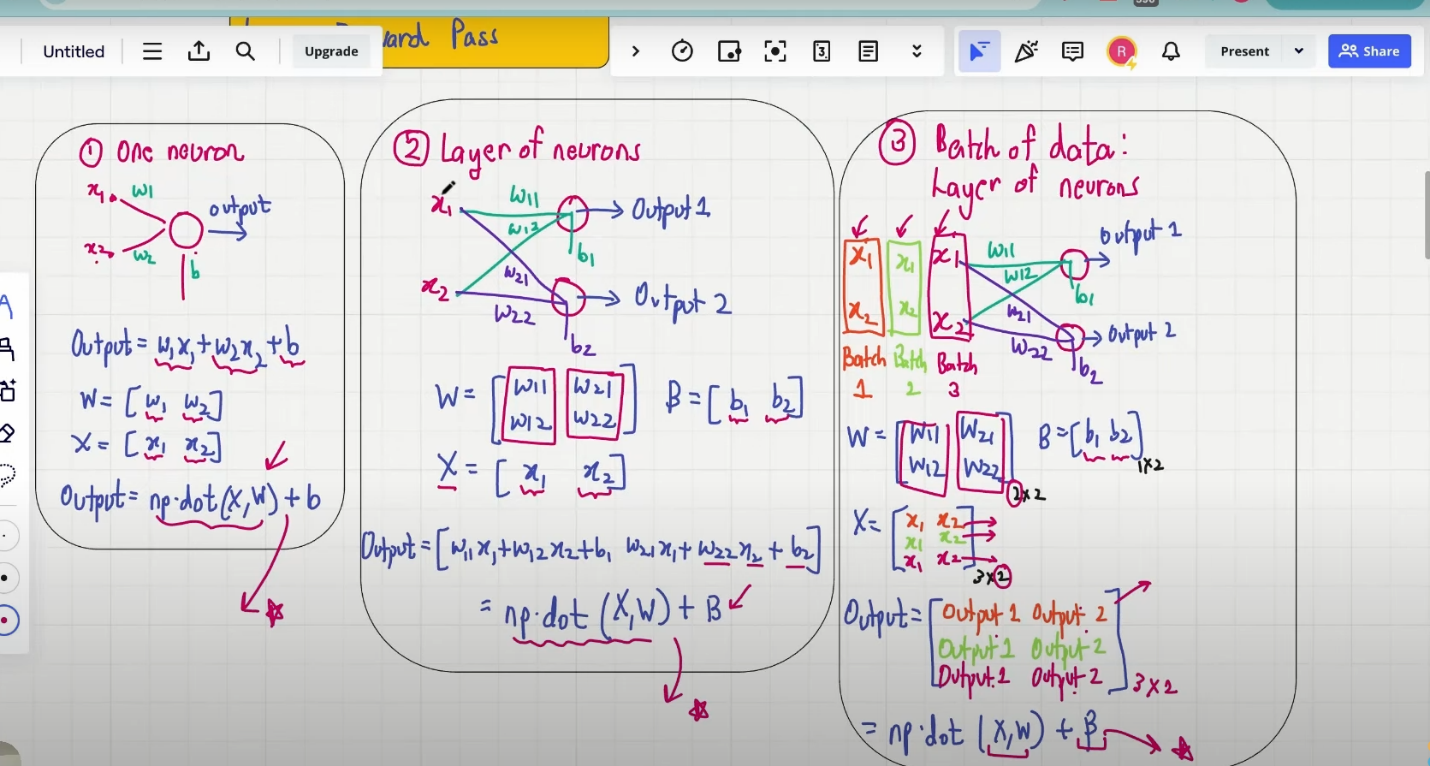 ward Pass
Untitled
Upgrade
3
R
Present
Share
① One neuron
x1 w1
output
x2 w2
b
Output = w1x1 + w2x2 + b
W = [w1 w2]
X = [x1 x2]
Output = np.dot(X,W) + b
② Layer of neurons
x1 w11 Output 1
w12
b1
w21
x2 w22 Output 2
b2
W = [w11 w21
w12 w22]
B = [b1 b2]
X = [x1 x2]
Output = [w11x1+w12x2+b1 w21x1+w22x2+b2]
= np.dot (X,W) + B
③ Batch of data:
Layer of neurons
x1 x1 x1 w11 output 1
w12
b1
w21
x2 x2 x2 w22 Output 2
b2
Batch Batch Batch
1 2 3
W = [w11 w21
w12 w22] 2x2
B = [b1 b2] 1x2
X = [x1 x2
x1 x2
x1 x2] 3x2
Output = [Output 1 Output 2
Output 1 Output 2
Output 1 Output 2] 3x2
= np.dot (X,W) + B